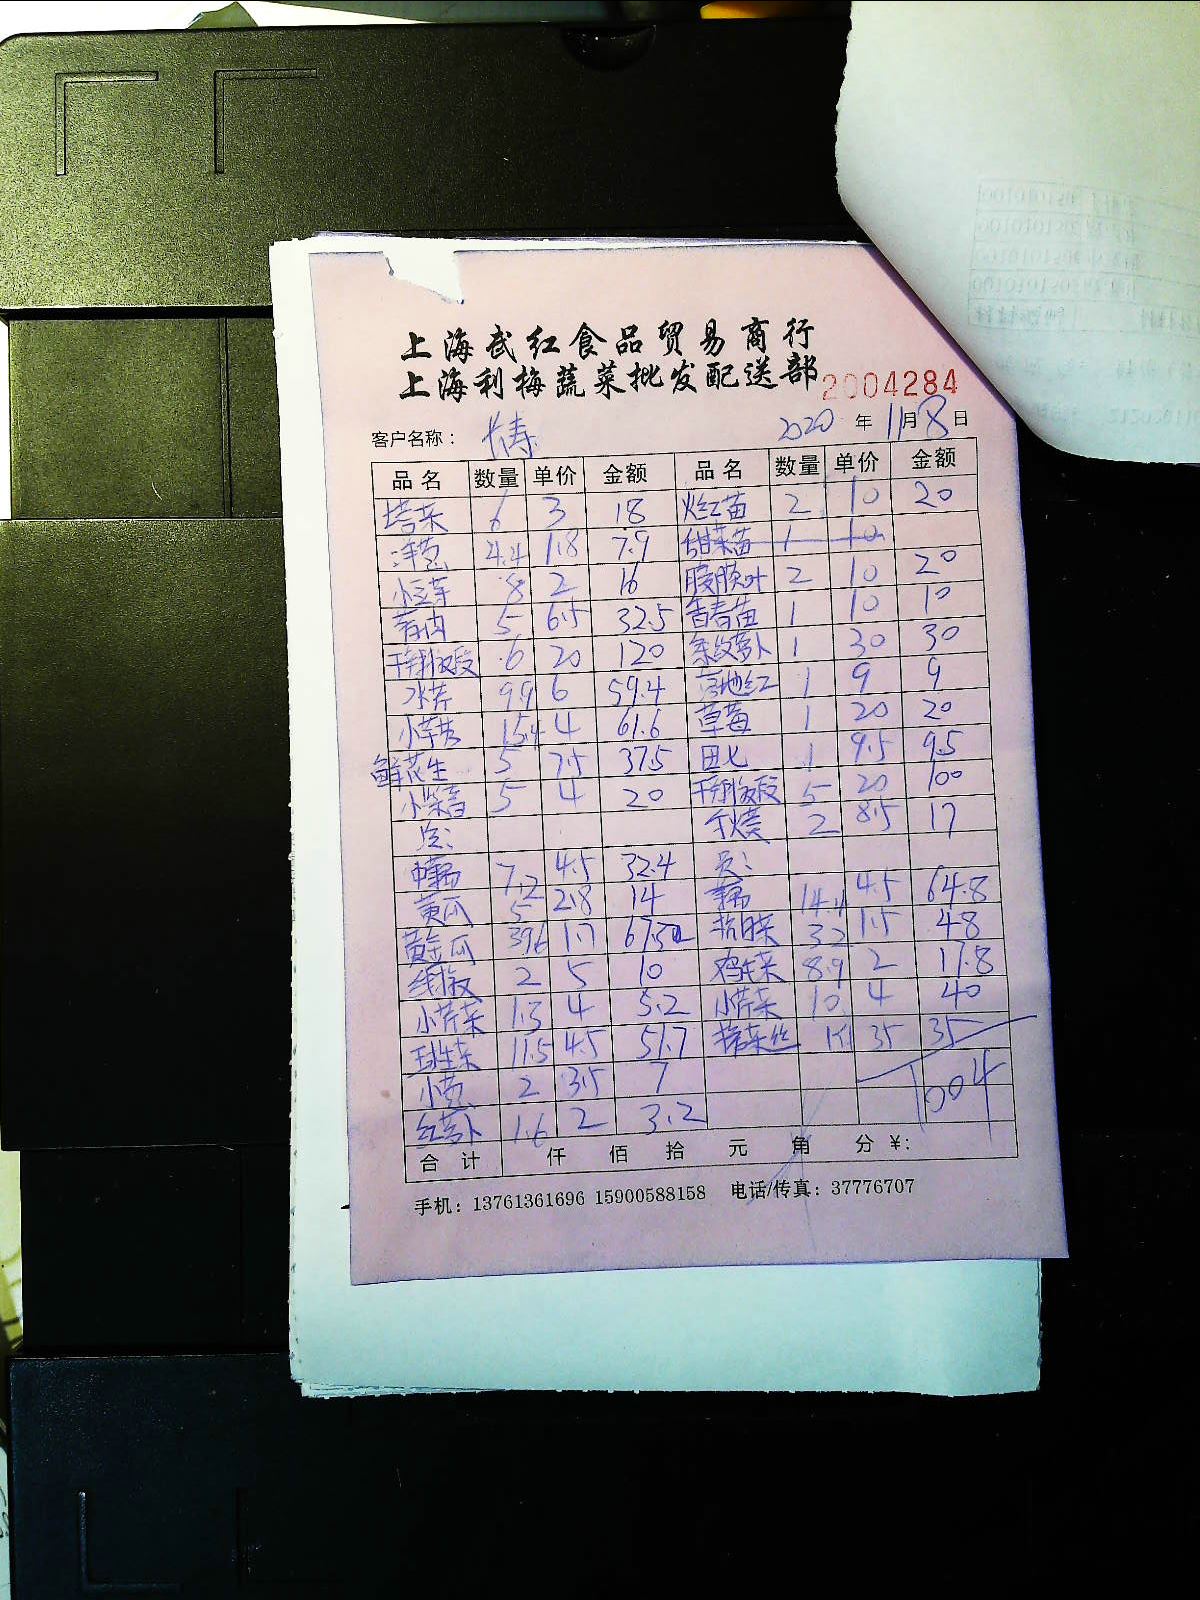 上海武红食品贸易商行
上海利梅蔬菜批发配送部 2004284
客户名称： 长寿 2020 年 11 月 8 日
品名 数量 单价 金额 品名 数量 单价 金额
塔菜 6 3 18 红苗 2 10 20
洋葱 4.4 1.8 7.9 甜菜苗 1 10
小豆芽 8 2 16 叶 2 10 20
5 6.5 32.5 香春苗 1 10 10
千 段 6 20 120 萝卜 1 30 30
水芹 9.9 6 59.4 地红 1 9 9
小芋艿 15.4 4 61.6 草莓 1 20 20
鲜花生 5 7.5 37.5 田七 1 9.5 9.5
小 5 4 20 千 段 5 20 100
2 8.5 17
7.2 4.5 32.4
黄瓜 5 2.8 14 14.4 4.5 64.8
黄金瓜 39.6 1.7 67.3 菜 32 1.5 48
线椒 2 5 10 鸡毛菜 8.9 2 17.8
小芹菜 1.3 4 5.2 小芹菜 10 4 40
球生菜 11.5 4.5 51.7 榨菜丝 1 35 35
小葱 2 3.5 7
红萝卜 1.6 2 3.2 1004
合计 仟 佰 拾 元 角 分 ¥：
手机：13761361696 15900588158 电话/传真：37776707